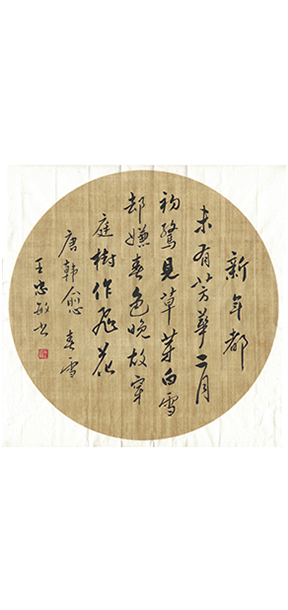 新年都
未有芳華二月
初驚見草芽白雪
却嫌春色晚故穿
庭樹作飛花
唐韓愈 春雪
王忠敏书